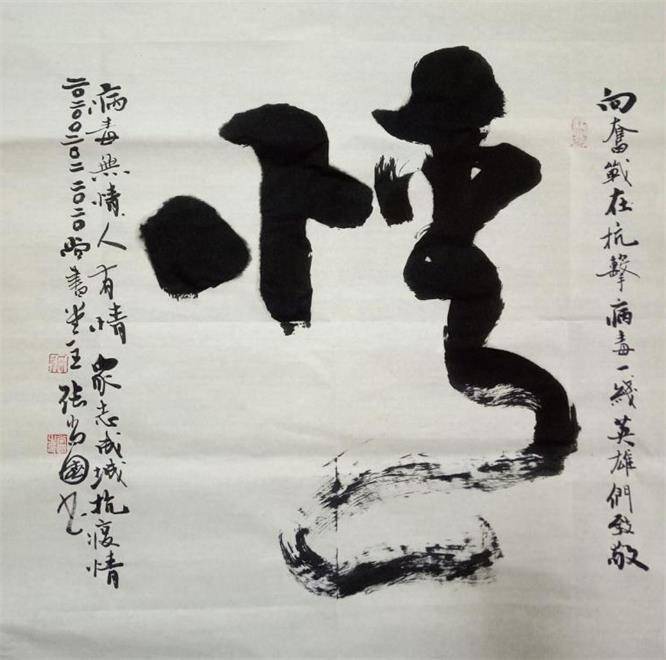 向奮戰在抗擊病毒一綫英雄們致敬
病毒無情人有情衆志成城抗疫情
二〇二〇尚書堂主張尚國書